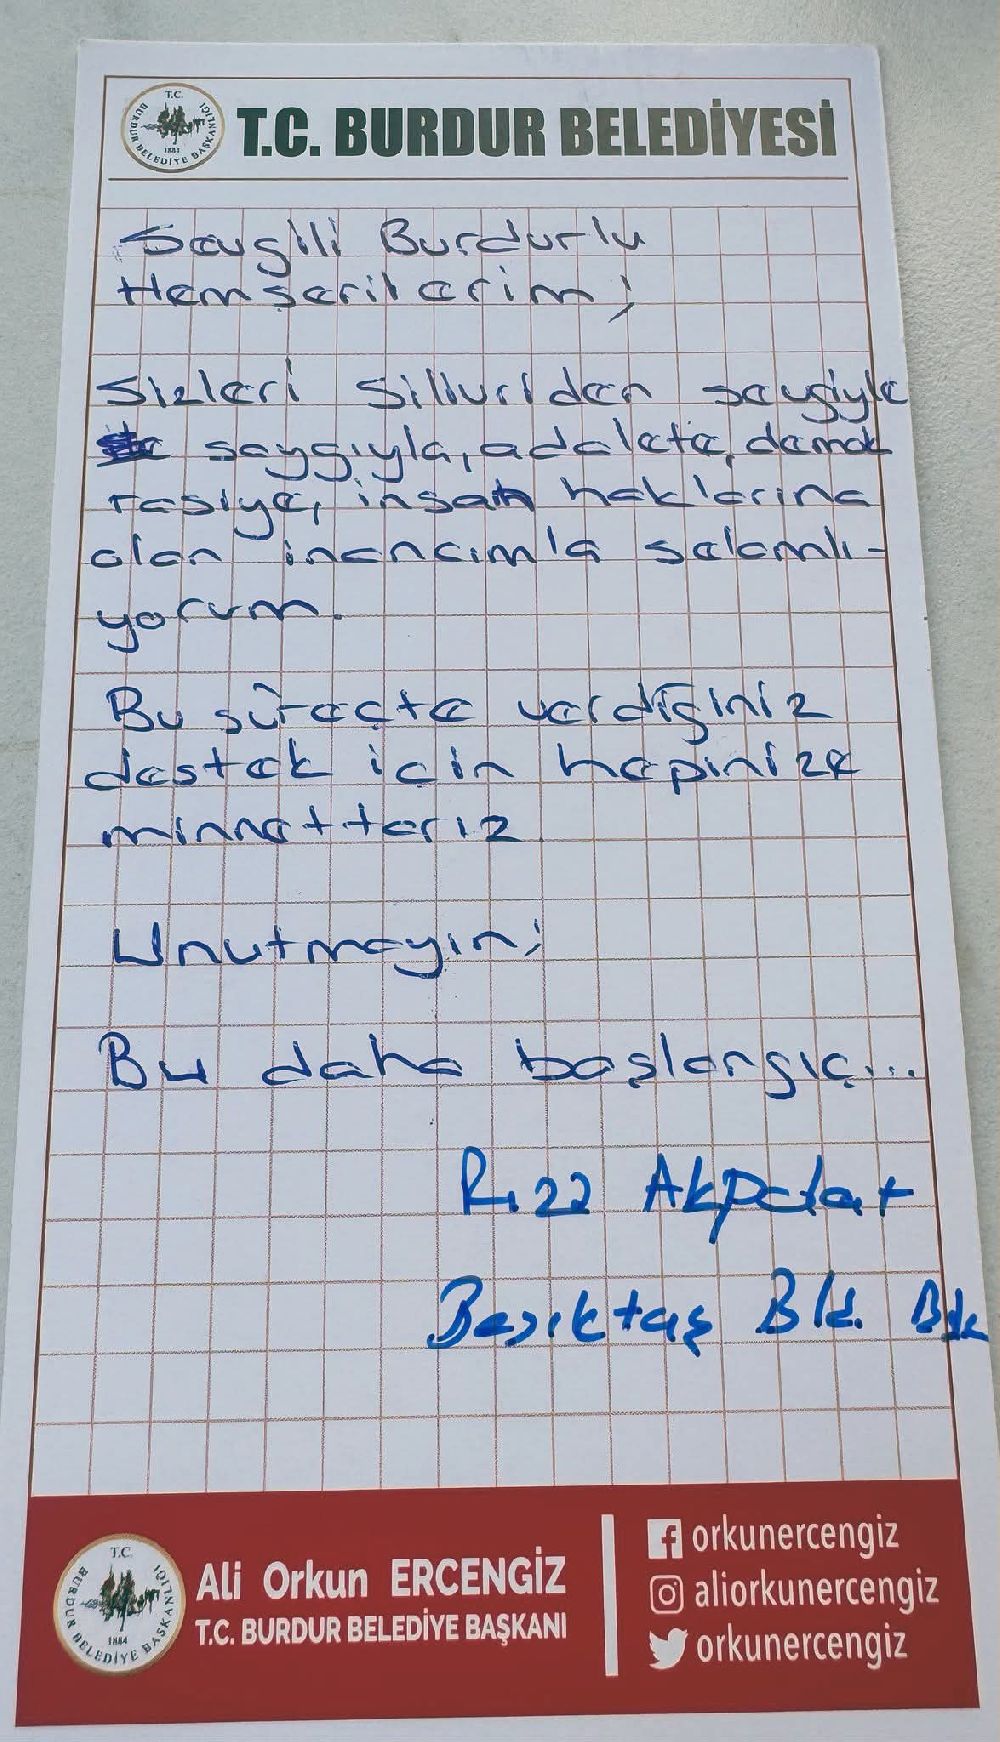 T.C.
BURDUR BELEDİYE BAŞKANLIĞI
1884
T.C. BURDUR BELEDİYESİ
Sevgili Burdurlu
Hemşerilerim;
Sizleri Silivri'den sevgiyle
saygıyla, adalete, demok
rasiye, insan haklarına
olan inancımla selamlı-
yorum.
Bu süreçte verdiğiniz
destek için hepinize
minnettarız
Unutmayın;
Bu daha başlangıç...
Rıza Akpolat
Beşiktaş Bld. Bşk
T.C.
BURDUR BELEDİYE BAŞKANLIĞI
1884
Ali Orkun ERCENGİZ
T.C. BURDUR BELEDİYE BAŞKANI
orkunercengiz
aliorkunercengiz
orkunercengiz